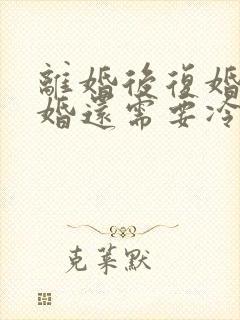 離婚後復婚
婚還需要冷
克萊默